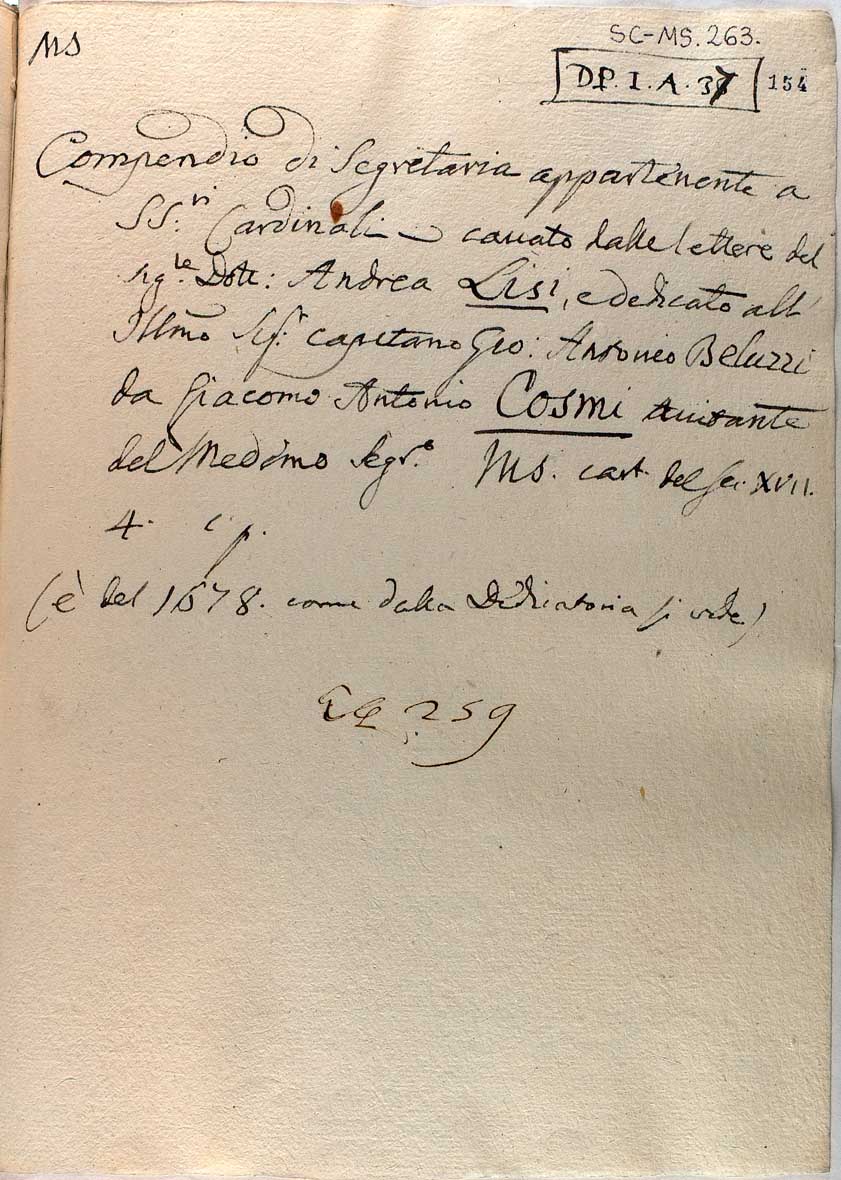 MS
SC-MS. 263.
D.P. I. A. 37
154
Compendio di Segretaria appartenente a
SS.ri Cardinali cavato dalle lettere del
Sig.re Dott: Andrea Lisi, e dedicato all'
Illmo Sig.r capitano Gio: Antonio Beluzzi
da Giacomo Antonio COSMI
del Medimo Segr.o Ms. cart. del sec. XVII.
4.
(è del 1678. come dalla Dedicatoria si vede)
259